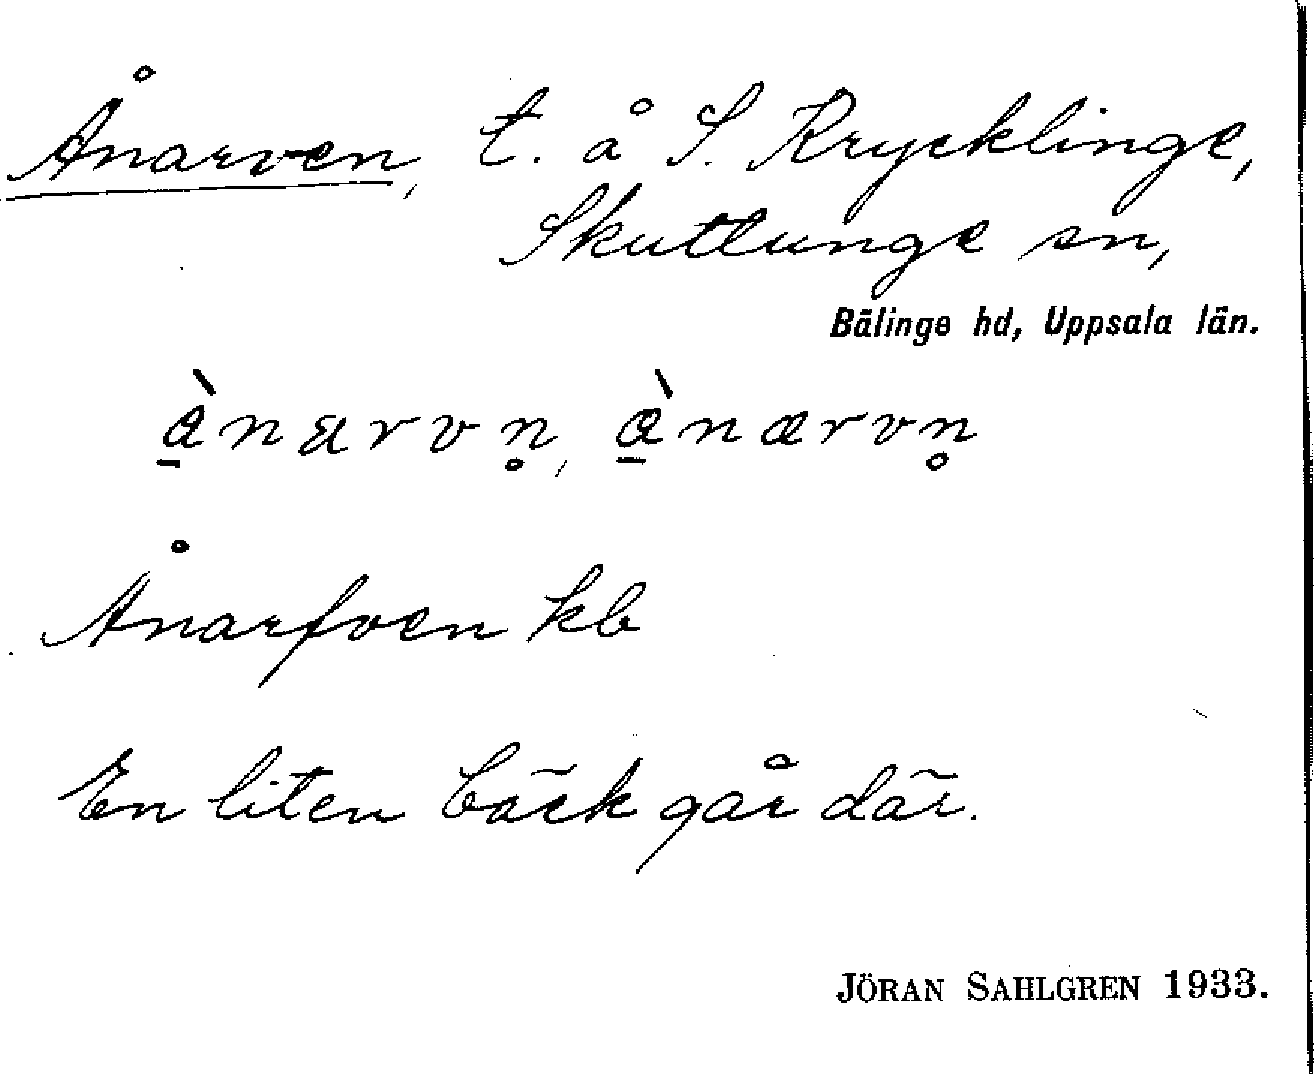 Ånarven, t. å S. Krycklinge,
Skuttunge sn,
Bälinge hd, Uppsala län.
Ånarfven kb
En liten bäck går där.
JÖRAN SAHLGREN 1933.